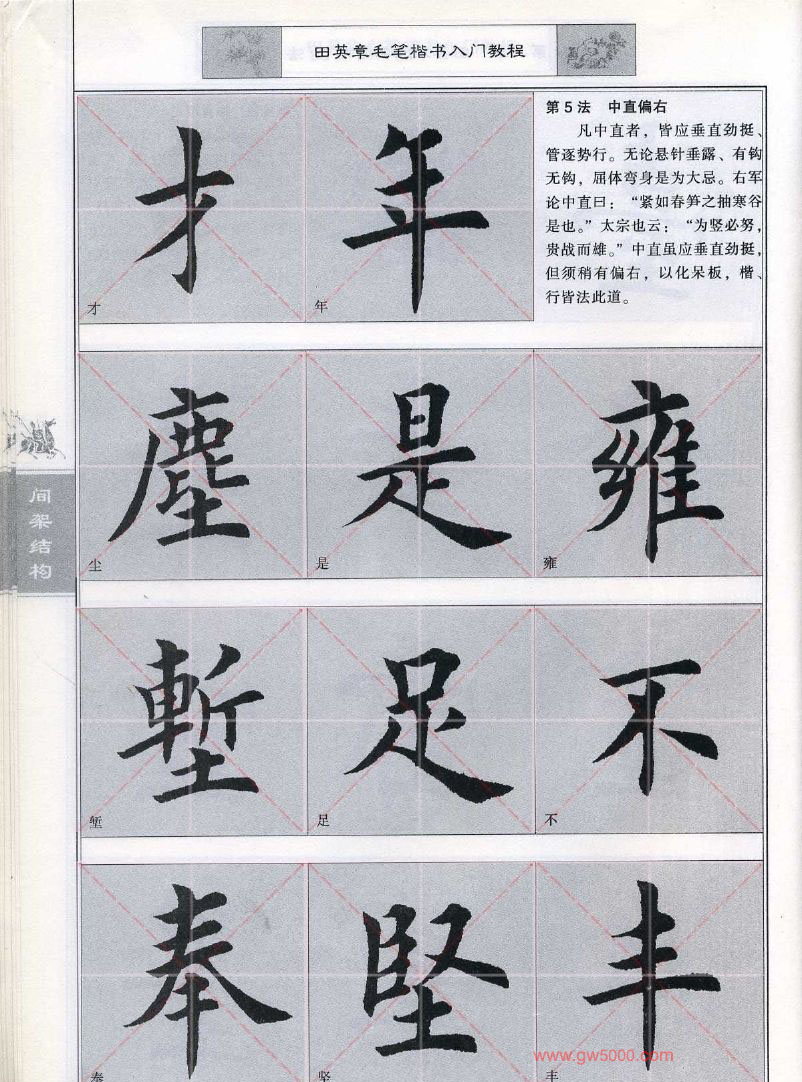 田英章毛笔楷书入门教程
第5法 中直偏右
凡中直者，皆应垂直劲挺、
管逐势行。无论悬针垂露、有钩
无钩，屈体弯身是为大忌。右军
论中直曰：“紧如春笋之抽寒谷
是也。”太宗也云：“为竖必努，
贵战而雄。”中直虽应垂直劲挺，
但须稍有偏右，以化呆板，楷、
行皆法此道。
才 年
才 年
塵 是 雍
尘 是 雍
间架结构
塹 足 不
堑 足 不
奉 堅 丰
奉 坚 丰
www.gw5000.com